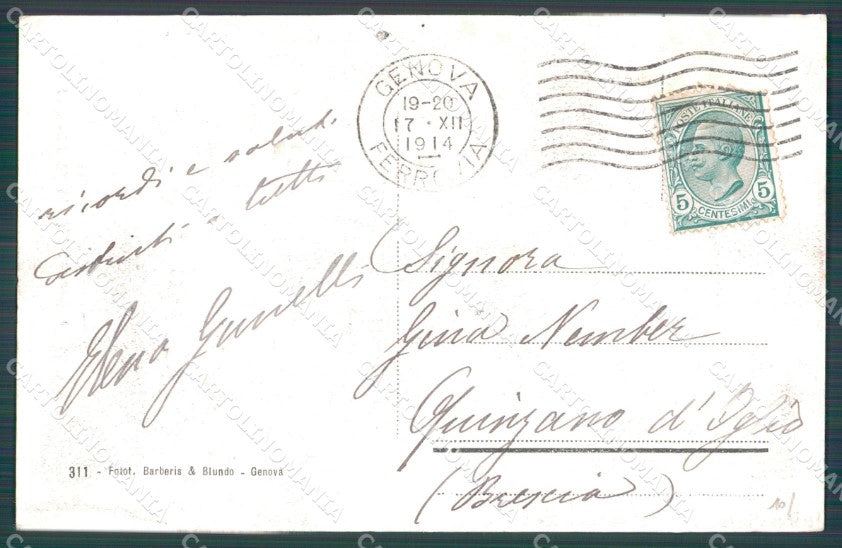 GENOVA
19-20
17 · XII
1914
FERROVIA
POSTE ITALIANE
5 5
CENTESIMI
ricordi e saluti
distinti a tutti
Elena
Signora
Gina Nember
Quinzano d'Oglio
(Brescia)
311 - Fotot. Barberis & Blundo - Genova
CARTOLINOMANIA